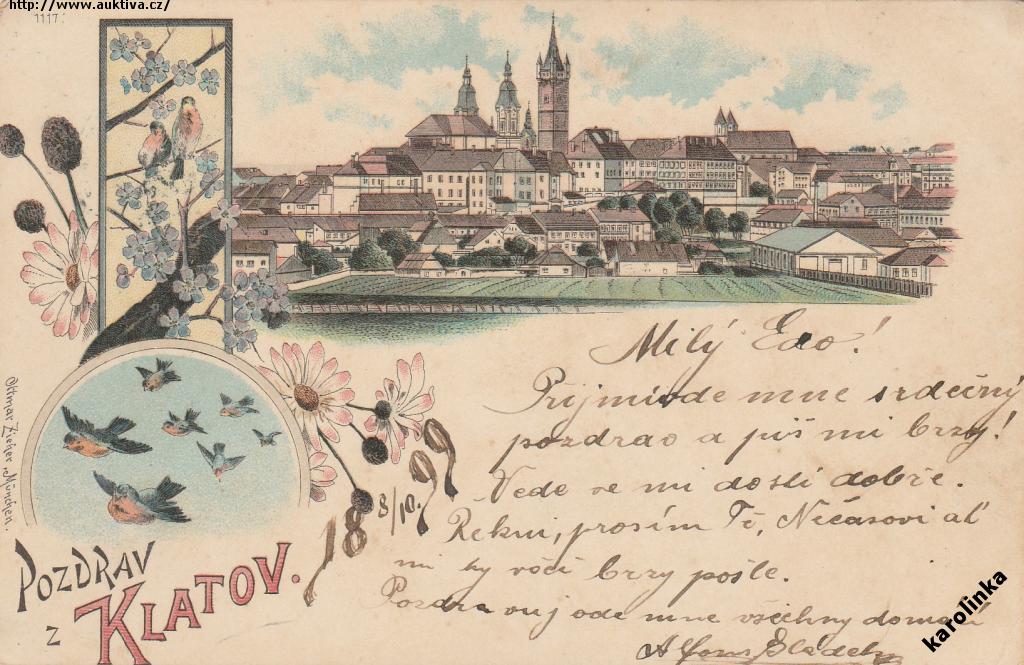 http://www.auktiva.cz/
1117.
Milý Edo!
Přijmi ode mne srdečný
pozdrav a piš mi brzy!
Vede se mi dosti dobře.
Rekni, prosím Tě, Nečasovi ať
mi ty věci brzy pošle.
Pozdravuj ode mne všechny domácí
Alfons Sládek
18 8/10. 99
Ottmar Zieher, München.
POZDRAV
z
KLATOV.
karolinka